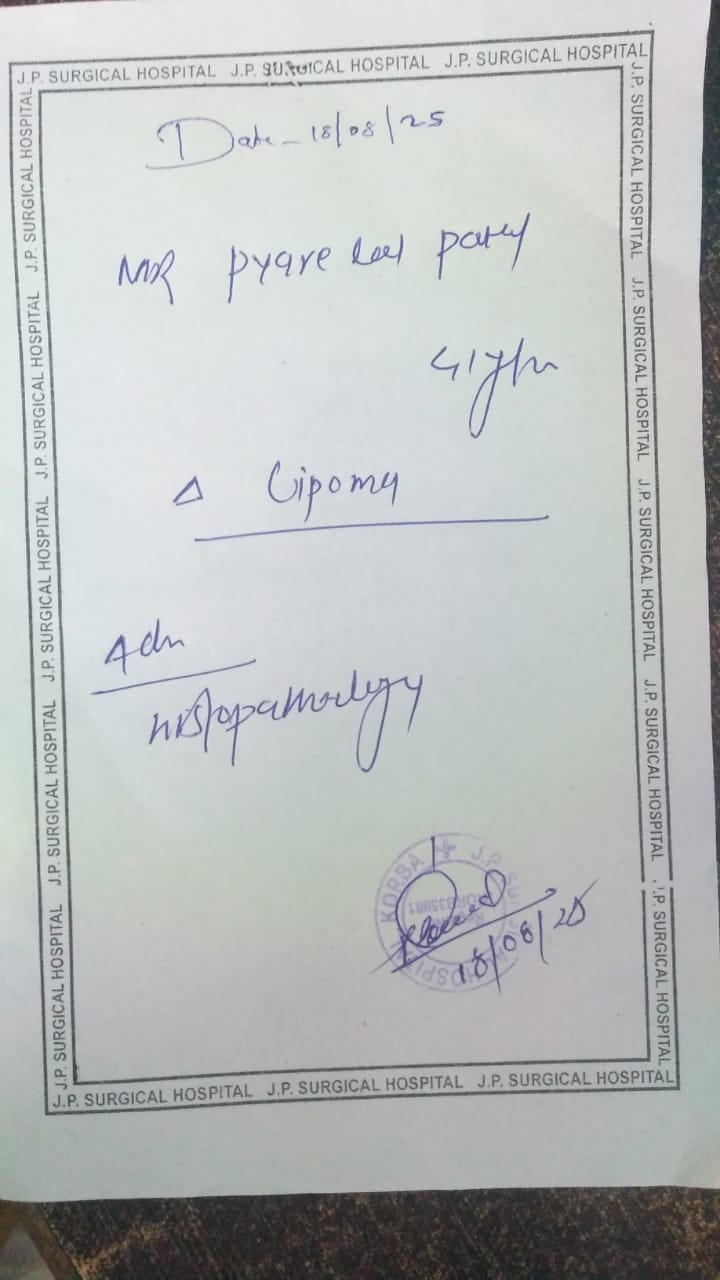 J.P. SURGICAL HOSPITAL J.P. SURGICAL HOSPITAL J.P. SURGICAL HOSPITAL
Date - 18/08/25
MR pyare lal patel
41 yrs
Δ Lipoma
Adv
Histopathology
KORBA J.P. SURGICAL HOSPITAL
18/08/25
J.P. SURGICAL HOSPITAL J.P. SURGICAL HOSPITAL J.P. SURGICAL HOSPITAL
J.P. SURGICAL HOSPITAL J.P. SURGICAL HOSPITAL J.P. SURGICAL HOSPITAL J.P. SURGICAL HOSPITAL J.P. SURGICAL HOSPITAL
J.P. SURGICAL HOSPITAL J.P. SURGICAL HOSPITAL J.P. SURGICAL HOSPITAL J.P. SURGICAL HOSPITAL J.P. SURGICAL HOSPITAL